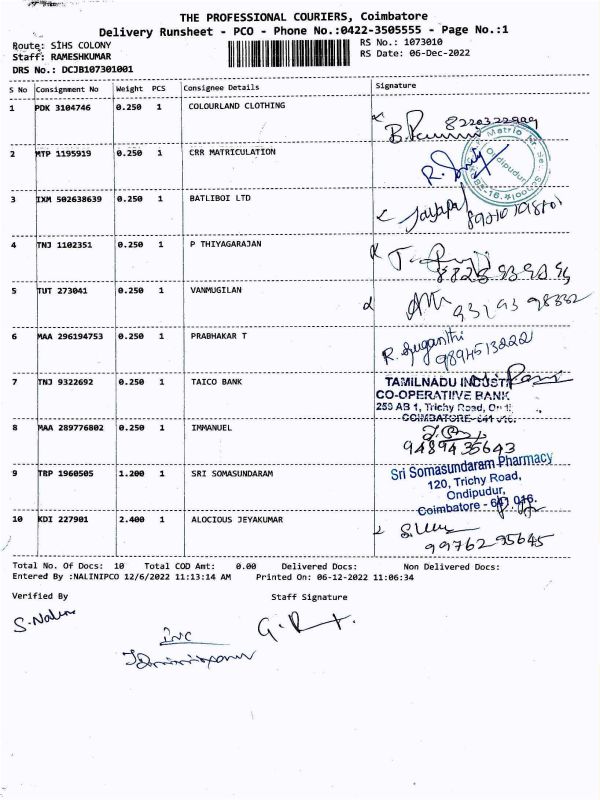 THE PROFESSIONAL COURIERS, Coimbatore
Delivery Runsheet - PCO - Phone No.:0422-3505555 - Page No.:1
Route: SIHS COLONY
RS No.: 1073010
Staff: RAMESHKUMAR
RS Date: 06-Dec-2022
DRS No.: DCJB107301001
S No Consignment No Weight PCS Consignee Details Signature
1 PDK 3104746 0.250 1 COLOURLAND CLOTHING
8220322909
2 MTP 1195919 0.250 1 CRR MATRICULATION
Ondipudur
3 IXM 502638639 0.250 1 BATLIBOI LTD
4 TNJ 1102351 0.250 1 P THIYAGARAJAN
5 TUT 273041 0.250 1 VANMUGILAN
93193 98332
6 MAA 296194753 0.250 1 PRABHAKAR T
R. Suganthi
9894513222
7 TNJ 9322692 0.250 1 TAICO BANK
TAMILNADU INDUSTR
CO-OPERATIIVE BANK
259 AB 1, Trichy Road,
COIMBATORE-641 016.
8 MAA 289776802 0.250 1 IMMANUEL
9489435643
9 TBP 1960505 1.200 1 SRI SOMASUNDARAM
Sri Somasundaram Pharmacy
120, Trichy Road,
Ondipudur,
Coimbatore - 641 016.
10 KDI 227901 2.400 1 ALOCIOUS JEYAKUMAR
9976295645
Total No. Of Docs: 10 Total COD Amt: 0.00 Delivered Docs: Non Delivered Docs:
Entered By :NALINIPCO 12/6/2022 11:13:14 AM Printed On: 06-12-2022 11:06:34
Verified By Staff Signature
S. Nalini